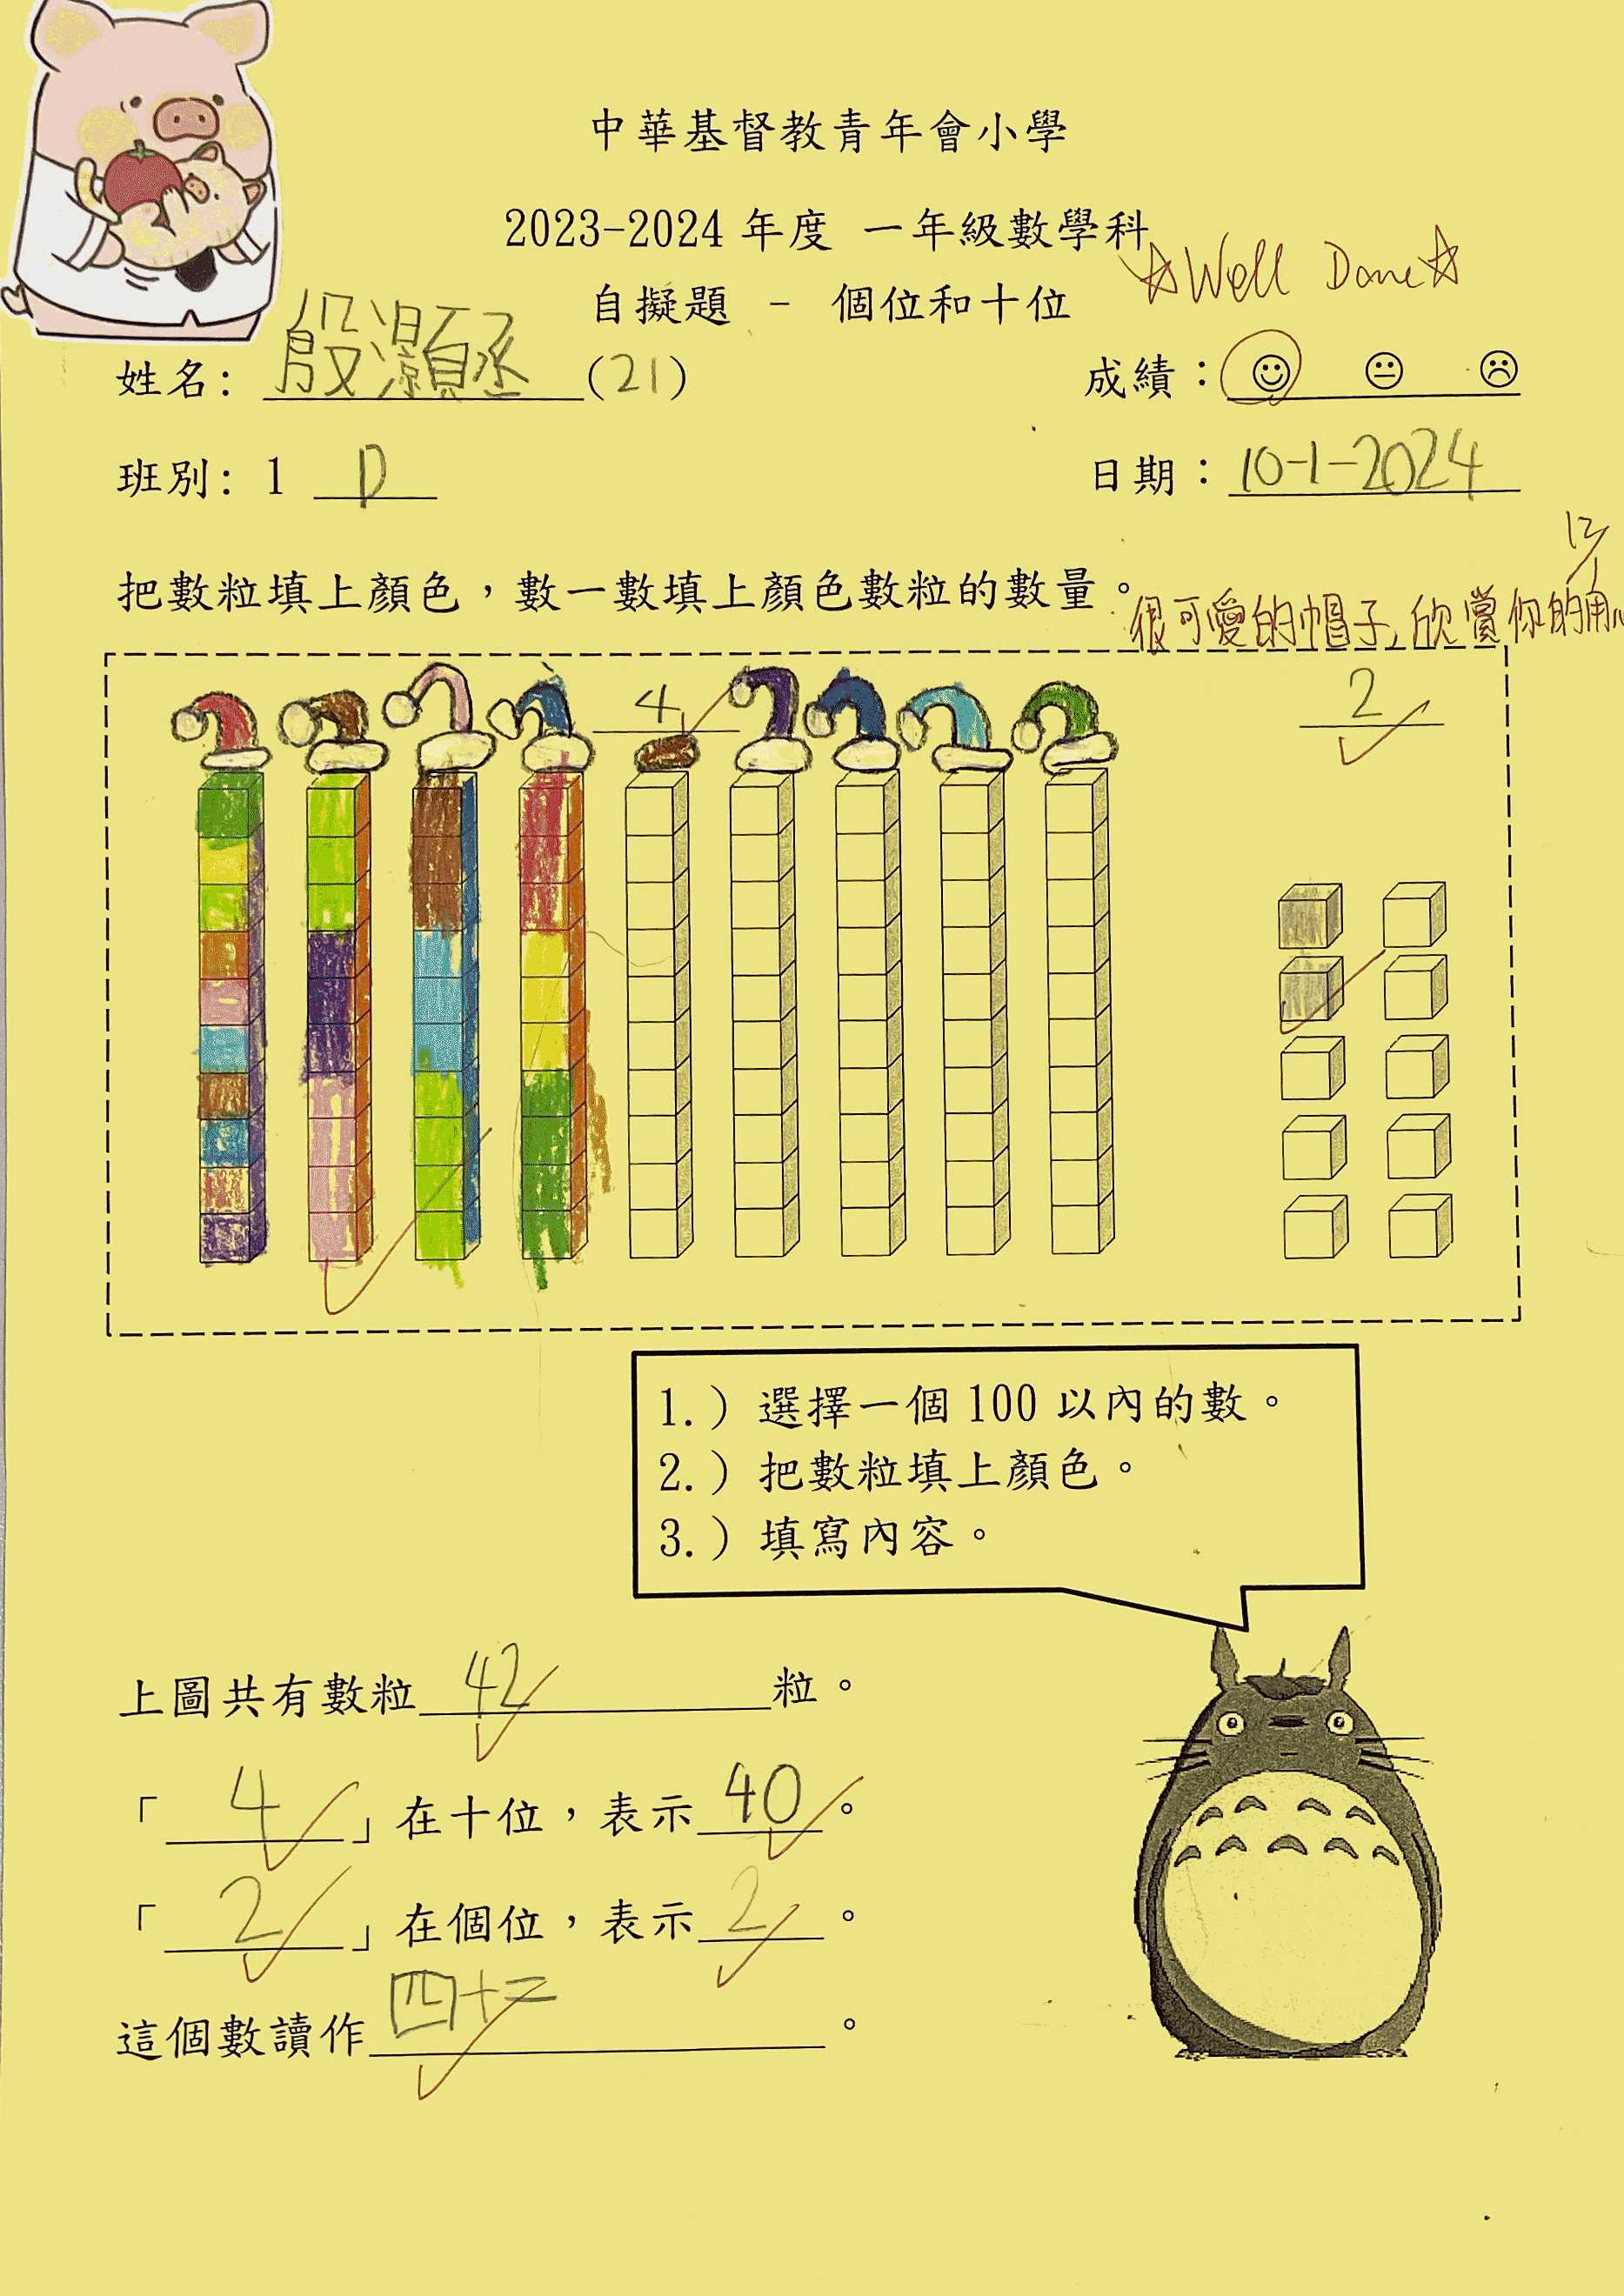 中華基督教青年會小學
2023-2024 年度 一年級數學科
☆Well Done☆
自擬題 - 個位和十位
姓名: 殷灝丞 (21) 成績：☺ 😐 ☹
班別: 1 D 日期：10-1-2024
把數粒填上顏色，數一數填上顏色數粒的數量。
很可愛的帽子,欣賞你的用心
4 2
1.) 選擇一個 100 以內的數。
2.) 把數粒填上顏色。
3.) 填寫內容。
上圖共有數粒 42 粒。
「 4 」在十位，表示 40 。
「 2 」在個位，表示 2 。
這個數讀作 四十二 。